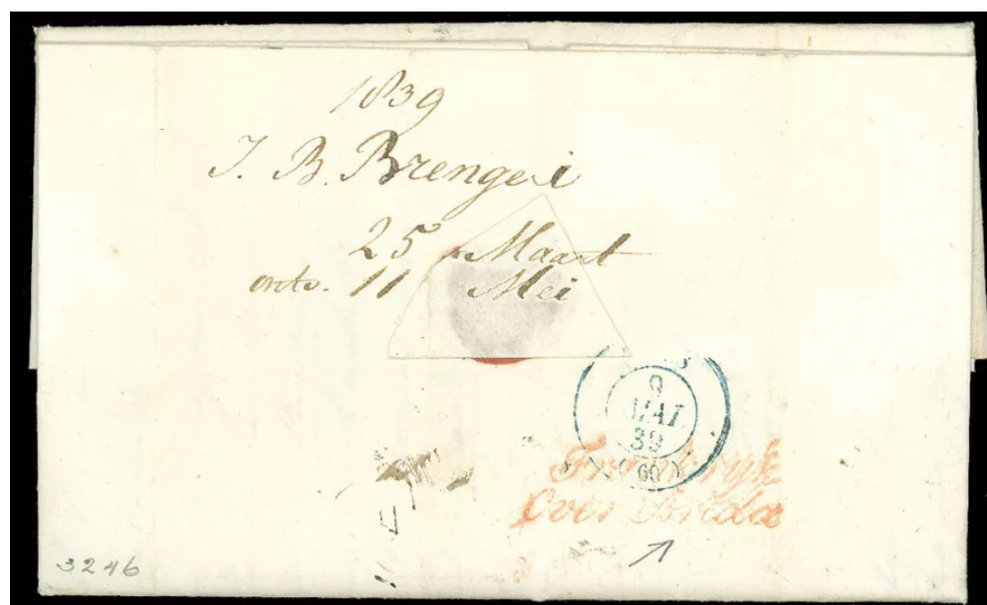 1839
J. B. Brengeri
25 Maart
ontv. 11 Mei
9
MAI
39
(60)
Frankryk
Over Breda
3246